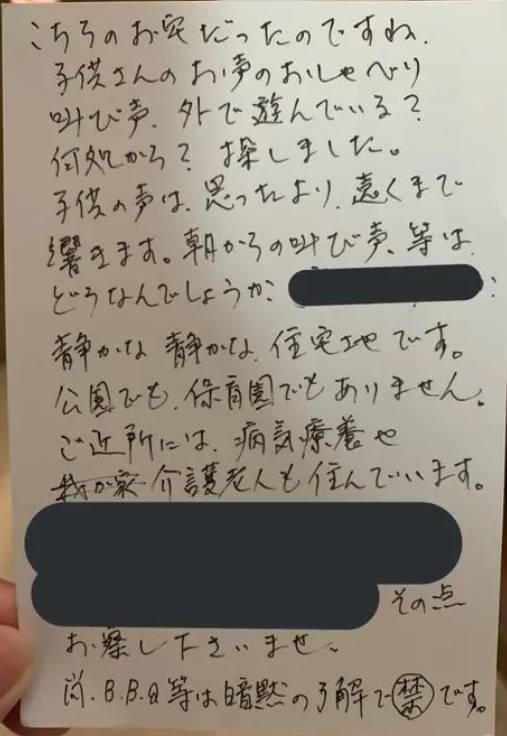 こちらのお宅だったのですね、
子供さんのお声のおしゃべり
叫び声、外で遊んでいる?
何処から? 探しました。
子供の声は、思ったより、遠くまで
響きます。朝からの叫び声、等は、
どうなんでしょうか、
静かな 静かな、住宅地です。
公園でも、保育園でもありません。
ご近所には、病気療養や
我が家 介護老人も住んでいます。
その点
お察し下さいませ、
尚、B.B.Q等は暗黙の了解で禁です。